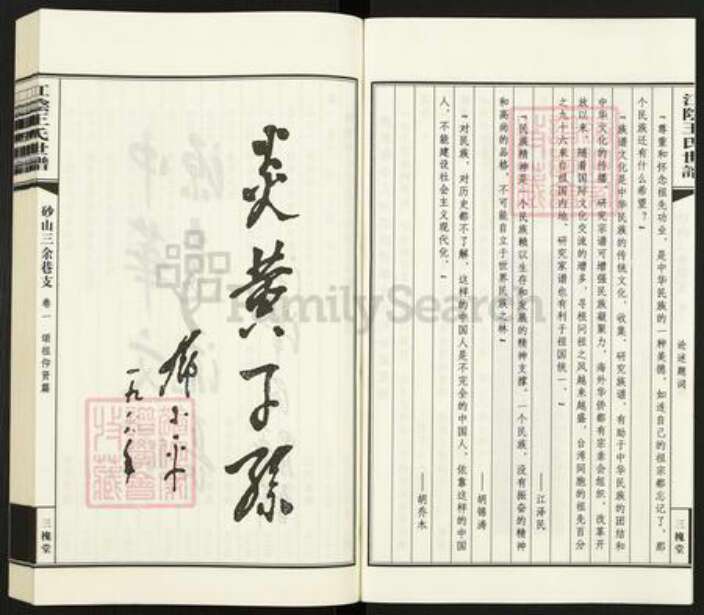 江陰王氏世譜
论述题词
三槐堂
“尊重和怀念祖先功业，是中华民族的一种美德，如连自己的祖宗都忘记了，那
个民族还有什么希望？”
“族谱文化是中华民族的传统文化，收集、研究族谱，有助于中华民族的团结和
中华文化的传播，研究宗谱可增强民族凝聚力，海外华侨都有宗亲会组织，改革开
放以来，随着国际文化交流的增多，寻根问祖之风越来越盛，台湾同胞的祖先百分
之九十六来自祖国内地，研究家谱也有利于祖国统一。”
——江泽民
“民族精神是一个民族赖以生存和发展的精神支撑。一个民族，没有振奋的精神
和高尚的品格，不可能自立于世界民族之林”
——胡锦涛
“对民族，对历史都不了解，这样的中国人是不完全的中国人，依靠这样的中国
人，不能建设社会主义现代化。”
——胡乔木
炎黄子孙
邓小平
一九八八年
江陰王氏世譜
砂山三余巷支
卷一
颂祖仰贤篇
三槐堂
FamilySearch